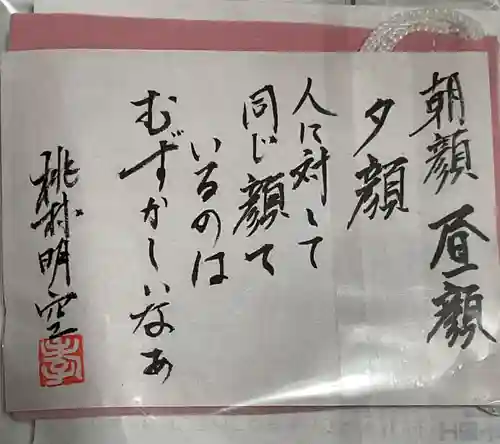 朝顔 昼顔
夕顔
人に対して
同じ顔で
いるのは
むずかしいなあ
桃林明空